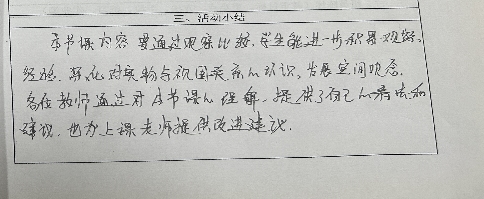 三、活动小结
本节课内容 要通过观察比较,学生能进一步积累观察
经验,强化对实物与视图关系的认识,发展空间观念。
各位教师通过对本节课的理解,提供了自己的看法和
建议,也为上课老师提供改进建议.